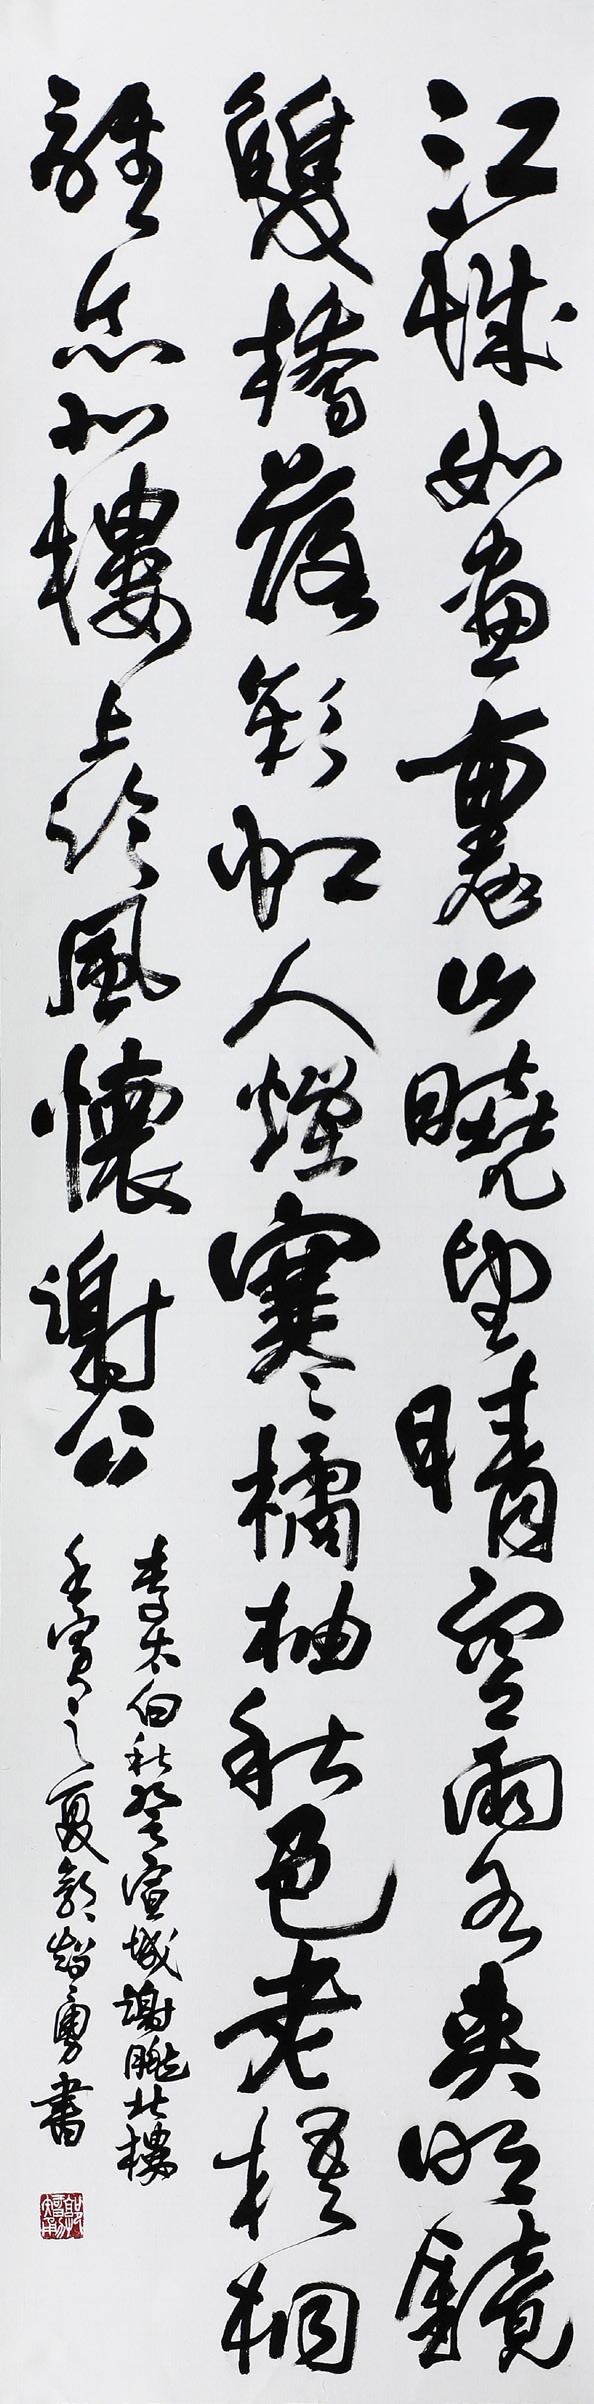 江城如畫裏山曉望晴空兩水夾明鏡
雙橋落彩虹人煙寒橘柚秋色老梧桐
誰念北樓上臨風懷謝公
李太白秋登宣城謝朓北樓
壬寅之夏郭勇書